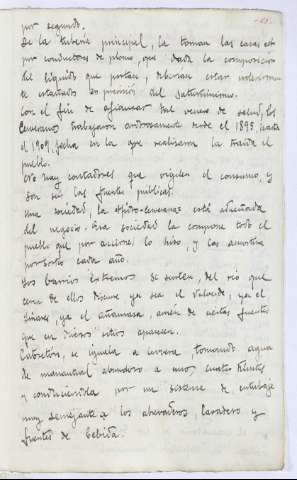 por segundo.
De la tubería principal, la toman las casas
por conductores de plomo, que dada la composición
del líquido que portan, debieran estar
de estañados en previsión del saturnismo.
Con el fin de afianzar tal venero de salud, los
cerveranos trabajaron ardorosamente desde el 1895, hasta
el 1909, fecha en la que realizaron la traída al
pueblo.
No hay contadores que vigilen el consumo, y
son seis las fuentes públicas.
Una sociedad, la Hidro-cerverana está adueñada
del negocio. Esa sociedad la compone todo el
pueblo que por acciones, lo hizo, y las amortiza
por sorteo cada año.
Los barrios extremos se surten, del río que
cerca de ellos discurre ya sea el Valverde, ya el
Linares, ya el Añamaza, amén de ciertas fuentes
que en diversos sitios aparecen.
Cabretón, se iguala a Cervera, tomando agua
de manantial abundoso a unos cuatro kmtrs
y conduciéndola por un sistema de entubaje
muy semejante a los abrevaderos lavadero y
fuentes de bebida.